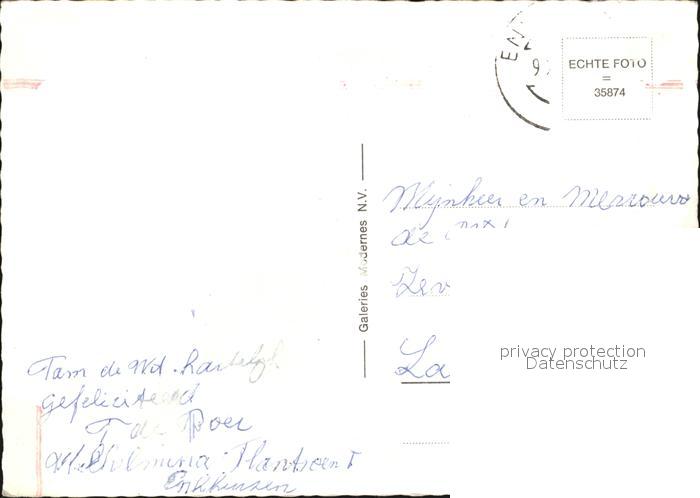 EN
9
ECHTE FOTO
=
35874
Galeries Modernes N.V.
Mijnheer en Mevrouw
de
Zev
La
privacy protection
Datenschutz
Tam de Wit. hartelijk
gefeliciteerd
T de Boer
Wilhelmina Plantsoen 1
Enkhuizen